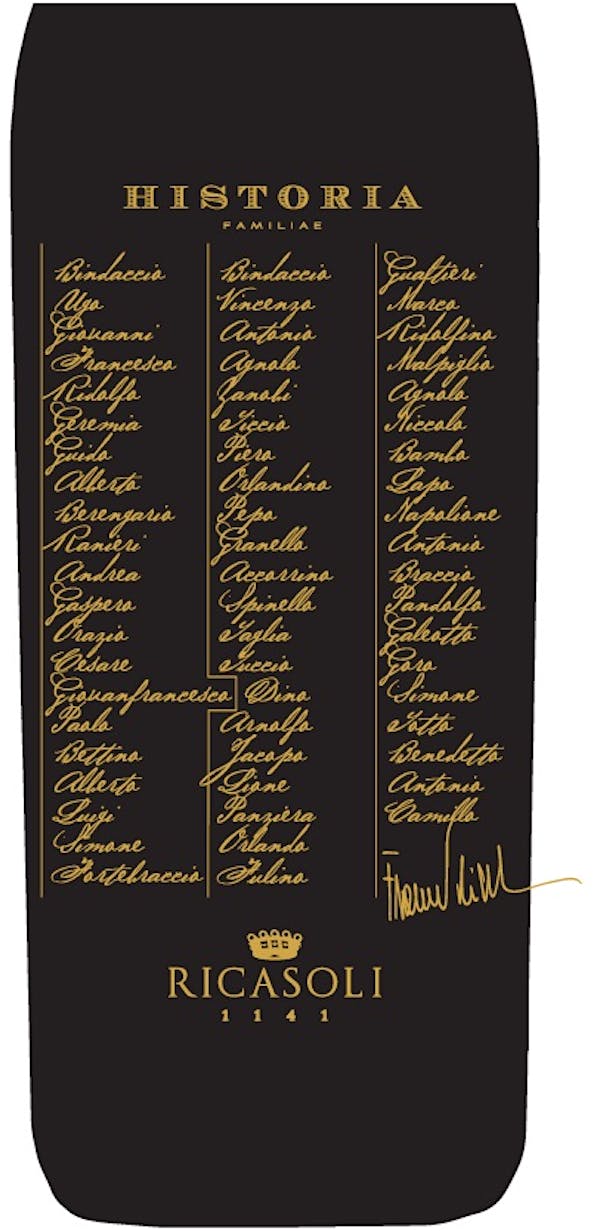 HISTORIA
FAMILIAE
Bindaccio
Ugo
Giovanni
Francesco
Ridolfo
Geremia
Guido
Alberto
Berengario
Ranieri
Andrea
Gaspero
Orazio
Cesare
Giovanfrancesco
Paolo
Bettino
Alberto
Luigi
Simone
Fortebraccio
Bindaccio
Vincenzo
Antonio
Agnolo
Zanobi
Ticcio
Piero
Orlandino
Pepo
Granello
Accorrino
Spinello
Taglia
Tuccio
Dino
Arnolfo
Jacopo
Lione
Panziera
Orlando
Fulino
Gualtieri
Marco
Ridolfino
Malpiglio
Agnolo
Niccolo
Bambo
Lapo
Napolione
Antonio
Braccio
Pandolfo
Galeotto
Goro
Simone
Totto
Benedetto
Antonio
Camillo
RICASOLI
1141